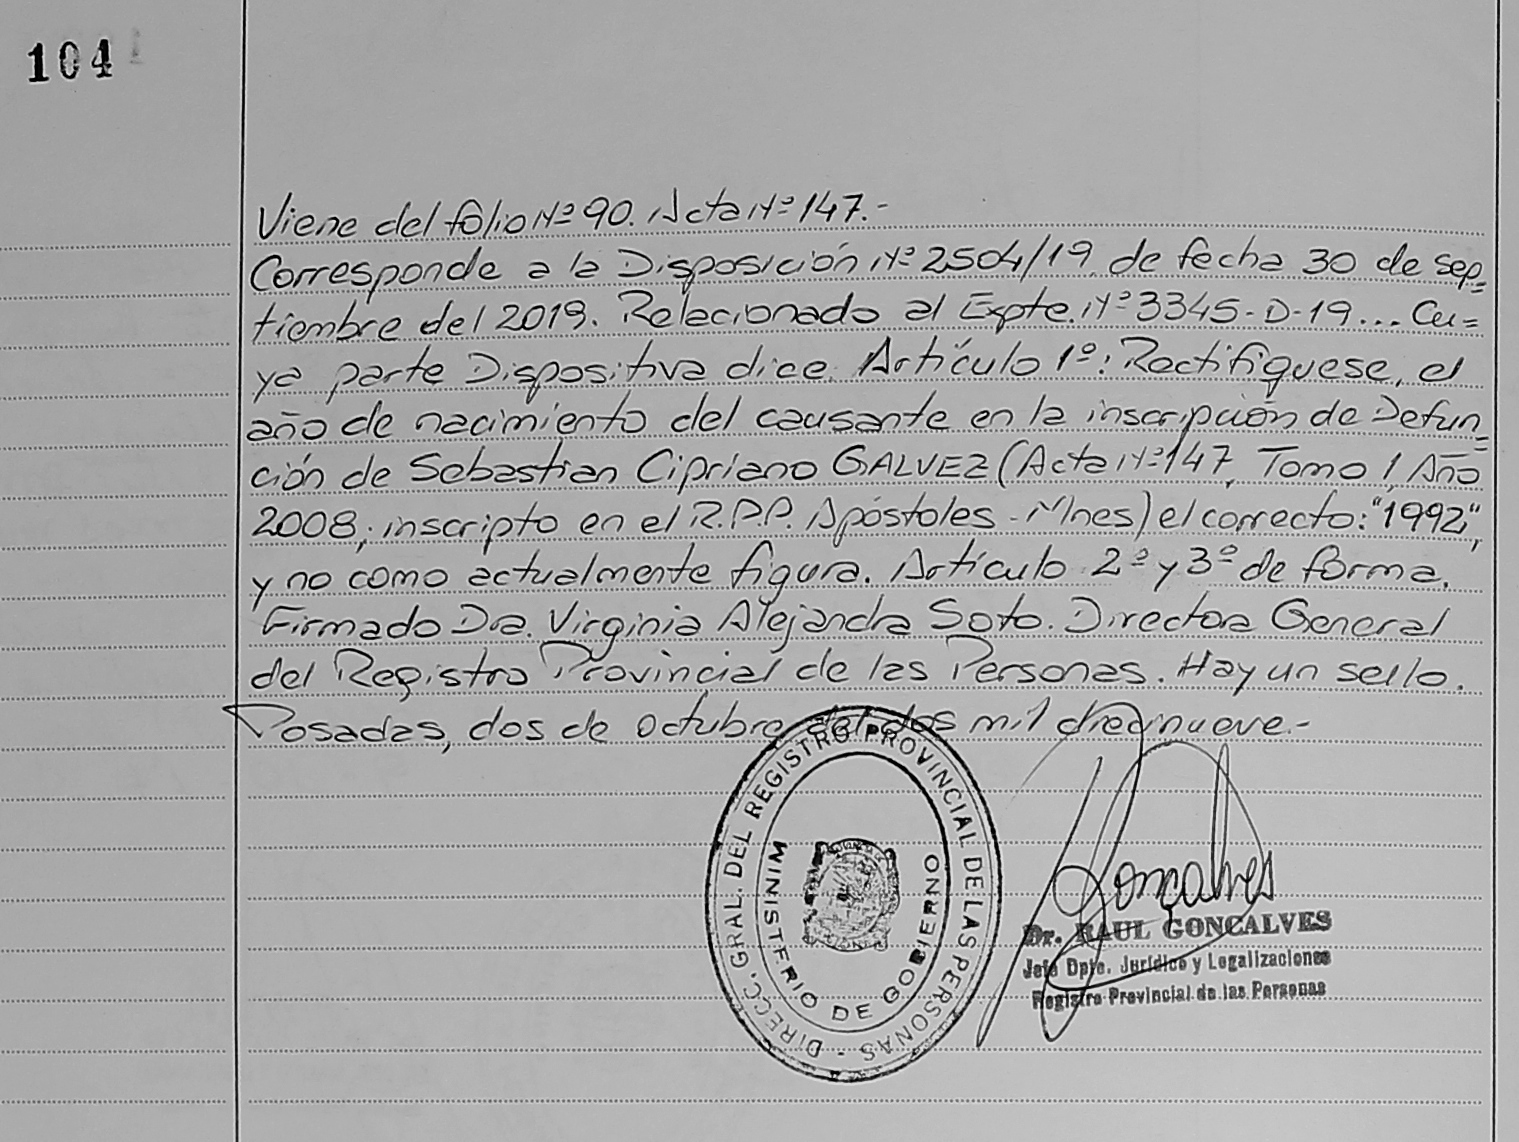 104
Viene del folio Nº 90. Acta Nº 147.-
Corresponde a la Disposición Nº 2504/19, de fecha 30 de sep=
tiembre del 2019. Relacionado al Expte. Nº 3345-D-19... Cu=
ya parte Dispositiva dice. Artículo 1º: Rectifíquese, el
año de nacimiento del causante en la inscripción de Defun=
ción de Sebastian Cipriano GALVEZ (Acta Nº 147, Tomo 1, Año
2008, inscripto en el R.P.P. Apóstoles - Mnes) el correcto: "1992",
y no como actualmente figura. Artículo 2º y 3º de forma.
Firmado Dra. Virginia Alejandra Soto. Directora General
del Registro Provincial de las Personas. Hay un sello.
Posadas, dos de octubre del dos mil diecinueve.-
DIRECC. GRAL. DEL REGISTRO PROVINCIAL DE LAS PERSONAS -
MINISTERIO DE GOBIERNO
Goncalves
Dr. RAUL GONCALVES
Jefe Dpto. Jurídico y Legalizaciones
Registro Provincial de las Personas